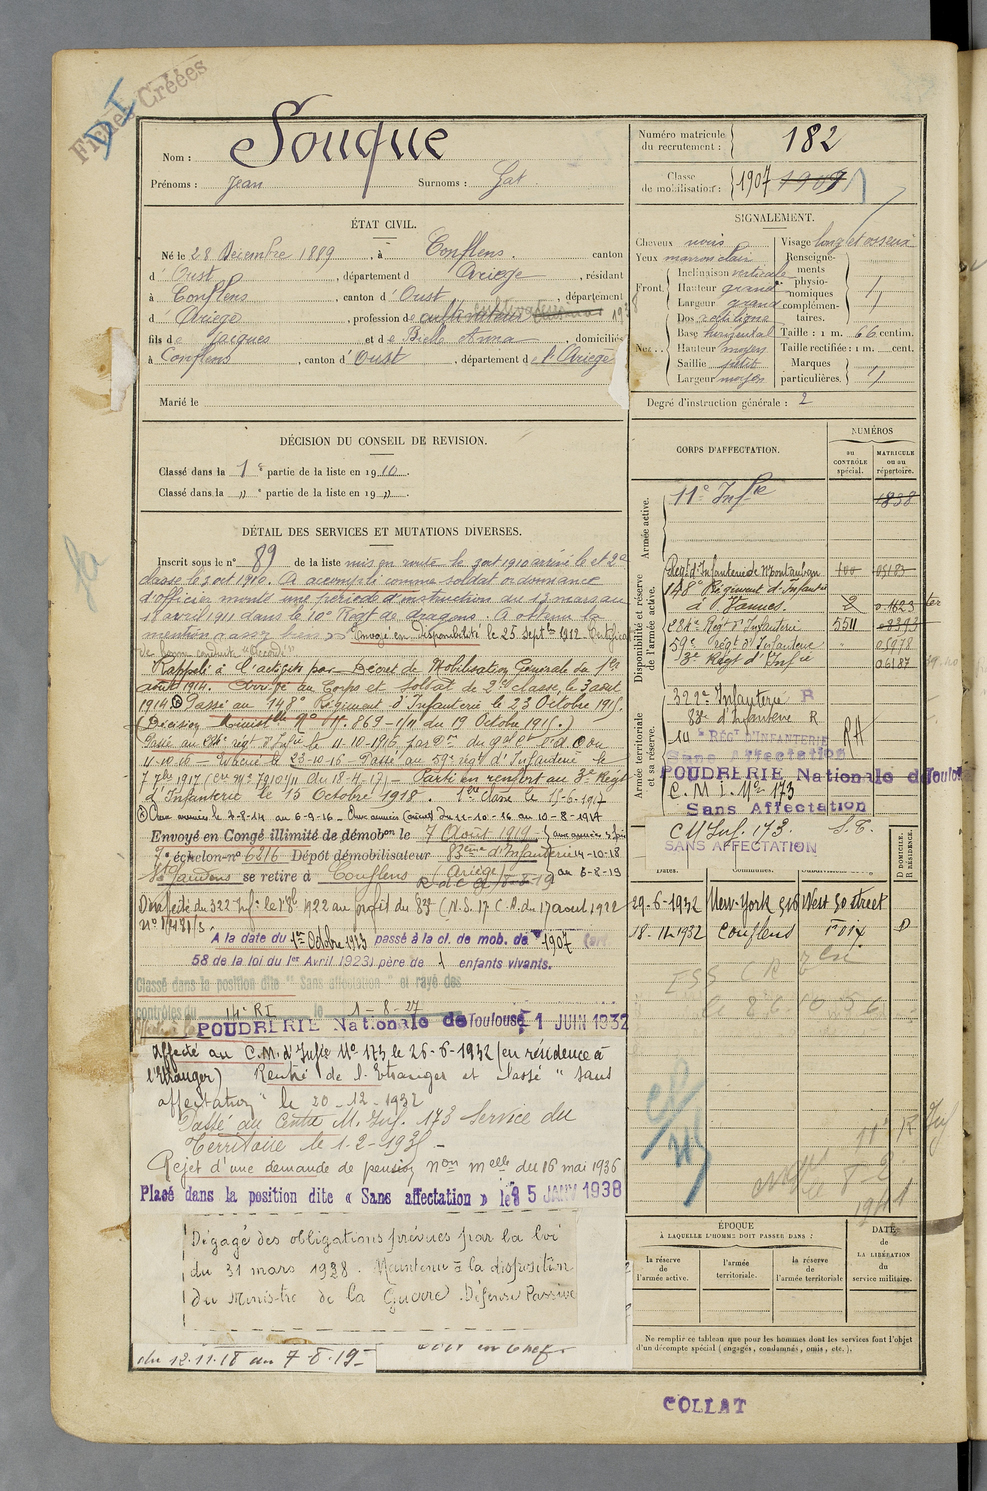 Fiches Créées
D I
Nom : Souque
Prénoms : Jean Surnoms : Gat.
Numéro matricule du recrutement : 182
Classe de mobilisation : 1907 1909
ÉTAT CIVIL.
Né le 28 Décembre 1889, à Conflens. canton
d' Oust, département d Ariège, résidant
à Conflens, canton d' Oust, département
d' Ariège, profession de cultivateur
fils de Jacques et de Bielle Anna, domiciliés
à Conflens, canton d' Oust, département de l'Ariège
Marié le
SIGNALEMENT.
Cheveux noirs Visage long et osseux
Yeux marron clair
Front. Inclinaison verticale
Hauteur grand
Largeur grand
Nez.. Dos rectiligne
Base horizontal
Hauteur moyen
Saillie petit
Largeur moyen
Renseignements physionomiques complémentaires. 〃
Taille : 1 m. 66 centim.
Taille rectifiée : 1 m. cent.
Marques particulières. 〃
Degré d'instruction générale : 2
DÉCISION DU CONSEIL DE REVISION.
Classé dans la 1e partie de la liste en 1910.
Classé dans la 〃 e partie de la liste en 19 〃.
DÉTAIL DES SERVICES ET MUTATIONS DIVERSES.
Inscrit sous le n° 89 de la liste mis en route le 3 oct 1910 arrivé le et 2e
classe le 3 oct 1910. A accompli comme soldat ordonnance
d'officier monté une période d'instruction du 13 mars au
11 avril 1911 dans le 10e Régt de dragons. A obtenu la
mention "assez bien" Envoyé en disponibilité le 25 Septbre 1912. Certificat
de bonne conduite "Accordé".
Rappelé à l'activité par Décret de Mobilisation Générale du 1er
août 1914. Arrivé au Corps et soldat de 2e classe le 3 août
1914 Passé au 148e Régiment d'Infanterie le 23 Octobre 1915.
(Décision Ministlle n° 869-1/11 du 19 Octobre 1915.)
Passé au 284e régt d'Infie le 11-10-1916, par Don du
11-10-16 - Evacué le 23-10-16 - Passé au 59e régt d'Infanterie le
7 7bre 1917 - Parti en renfort au 3e Régt
d'Infanterie le 15 Octobre 1918. 1ère classe le 15-6-1917
Aux armées le 7-8-14 au 6-9-16 - Aux armées Du 11-10-16 au 10-8-1917
Envoyé en Congé illimité de démobon le 7 Août 1919.
7e échelon-n° 6216 Dépôt démobilisateur 83ème d'Infanterie 14-10-18
St Gaudens se retire à Conflens (Ariège) au 6-8-19
Désaffecté du 322 Inf. le 1922 au profit du 83e (N.S. 17e C.A. du 17 août 1922
A la date du 1er Octobre 1923 passé à la cl. de mob. de 1907
58 de la loi du 1er Avril 1923) père de 1 enfants vivants.
Classé dans la position dite "Sans affectation" et rayé des
contrôles du 14e RI le 1-8-27
POUDRERIE Nationale de Toulouse 1 JUIN 1932
Affecté au C.M. d'Infie N° 173 le 26-6-1932 (en résidence à
l'Etranger) Rentré de l'Etranger et classé "sans
affectation" le 20-12-1932
Passé au Centre M. Inf. 173 Service du
Territoire le 1-2-193
Rejet d'une demande de pension Non Melle du 16 mai 1936
Placé dans la position dite « Sans affectation » le 5 JANV 1938
Dégagé des obligations prévues par la loi
du 31 mars 1928. Maintenu à la disposition
du Ministre de la Guerre. Défense Passive
du 12.11.18 au 7.8.19
CORPS D'AFFECTATION.
NUMÉROS
AU CONTRÔLE spécial.
MATRICULE ou au répertoire.
Armée active.
11e Infie 1838
Disponibilité et réserve de l'armée active.
Régt d'Infanterie de Montauban 100 05183
148e Régiment d'Infanterie à Vannes. 2 01623 ter
284e Régt d'Infanterie 5511
59e régt d'Infanterie 05978
3e Régt d'Infie 06187
Armée territoriale et sa réserve.
322e Infanterie R
83e d'Infanterie R
14e RÉGT D'INFANTERIE RA
Sans Affectation
POUDRERIE Nationale de Toulouse
C. M. I. No 173
Sans Affectation
C M Inf. 173. S.T.
SANS AFFECTATION
DATES. COMMUNES. SUBDIVISIONS
D DOMICILE. R RÉSIDENCE.
29-6-1932 New-York 516 West 50 street
18-12-1932 Conflens Foix D
ÉPOQUE
À LAQUELLE L'HOMME DOIT PASSER DANS :
la réserve de l'armée active.
l'armée territoriale.
la réserve de l'armée territoriale
DATE de LA LIBÉRATION du service militaire.
Ne remplir ce tableau que pour les hommes dont les services font l'objet
d'un décompte spécial (engagés, condamnés, omis, etc.).
COLLAT